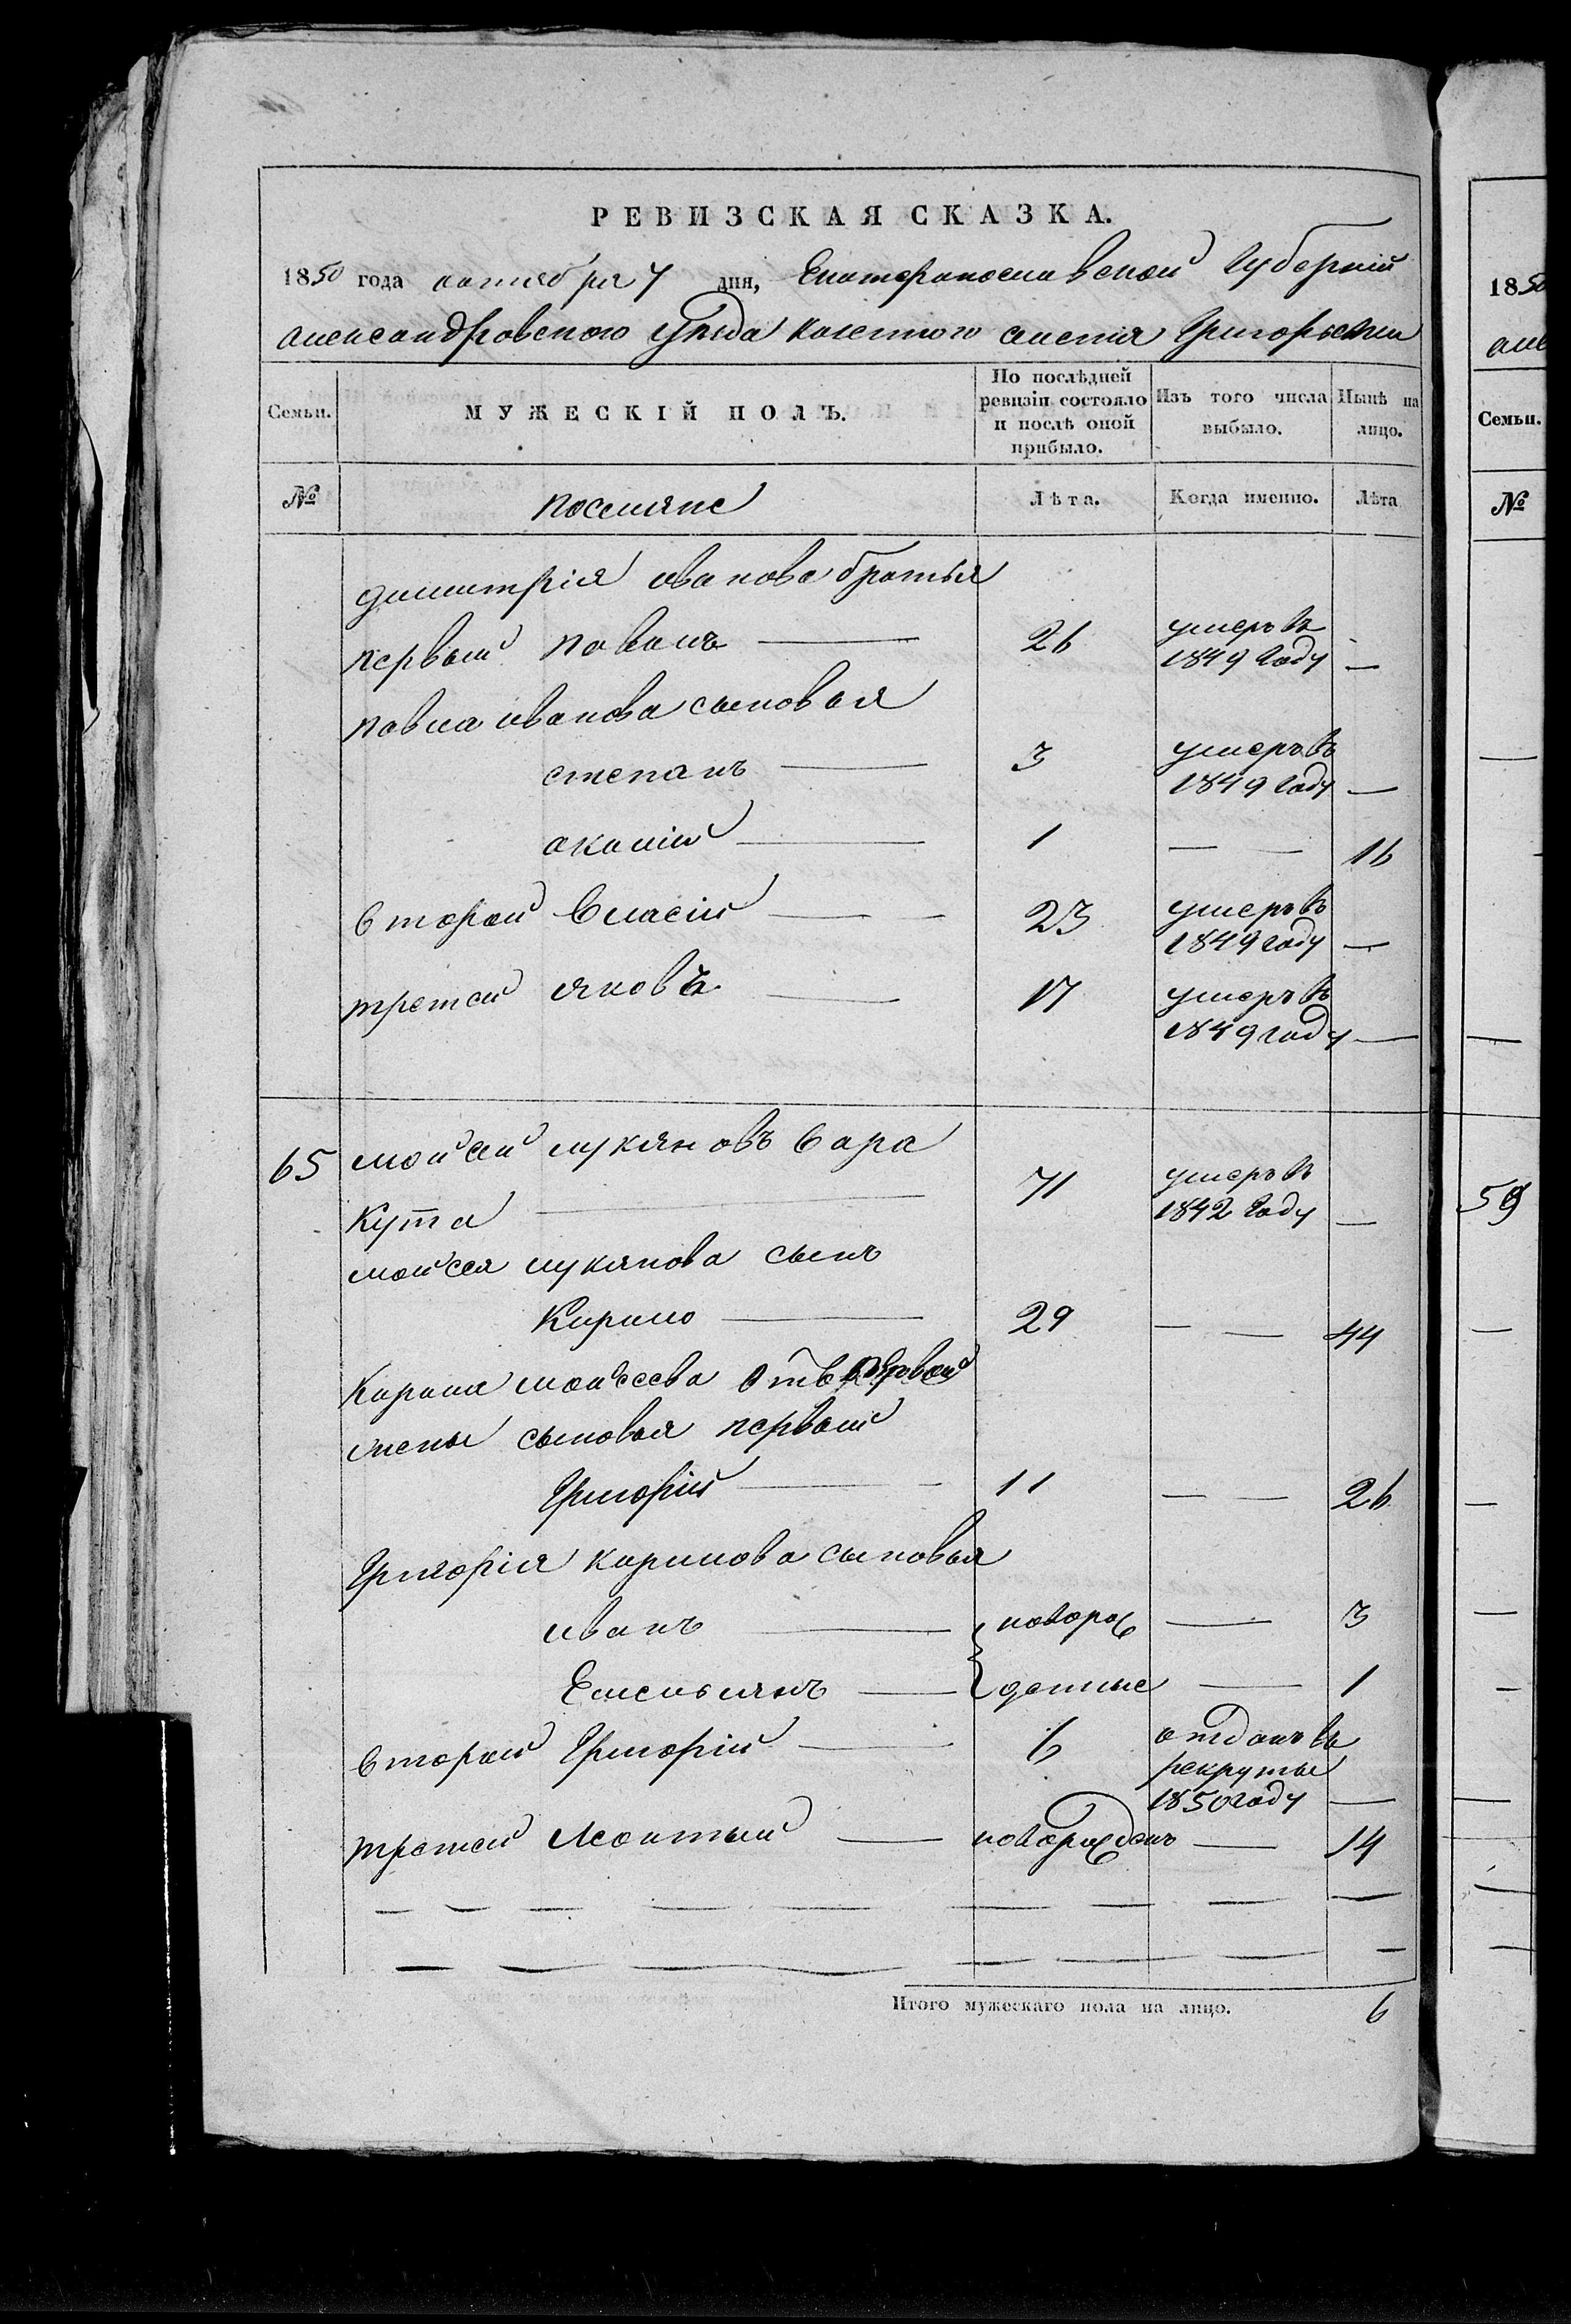 РЕВИЗСКАЯ СКАЗКА.
1850 года октября 7 дня, Екатеринославской Губерніи
Александровского уѣзда казенного селения Григорьевки
Семьи.
МУЖЕСКІЙ ПОЛЪ.
По послѣдней ревизіи состояло и послѣ оной прибыло.
Изъ того числа выбыло.
Нынѣ на лицо.
№
поселяне
Лѣта.
Когда именно.
Лѣта
димитрія иванова братья
первый павелъ — 26 умеръ въ 1849 году —
павла иванова сыновья
степанъ — 3 умеръ въ 1849 году —
акакій — 1 — — 16
второй Власій — — 23 умеръ въ 1849 году —
третей яковъ — 17 умеръ въ 1849 году —
65 мойсей лукяновъ вара
кута — 71 умеръ въ 1842 году —
мойсея лукянова сынъ
Кирило — 29 — — 44
Кирила мойсеева отъ первой
жены сыновья первый
Григорій — 11 — — 26
Григорія кирилова сыновья
иванъ — новорож — 3
Емельянъ — денные — 1
второй Григорій — 6 отданъ въ рекруты 1850 году —
третей Леонтый — новорожденъ — 14
Итого мужескаго пола на лицо. 6
1850
але
Семьи.
№
59